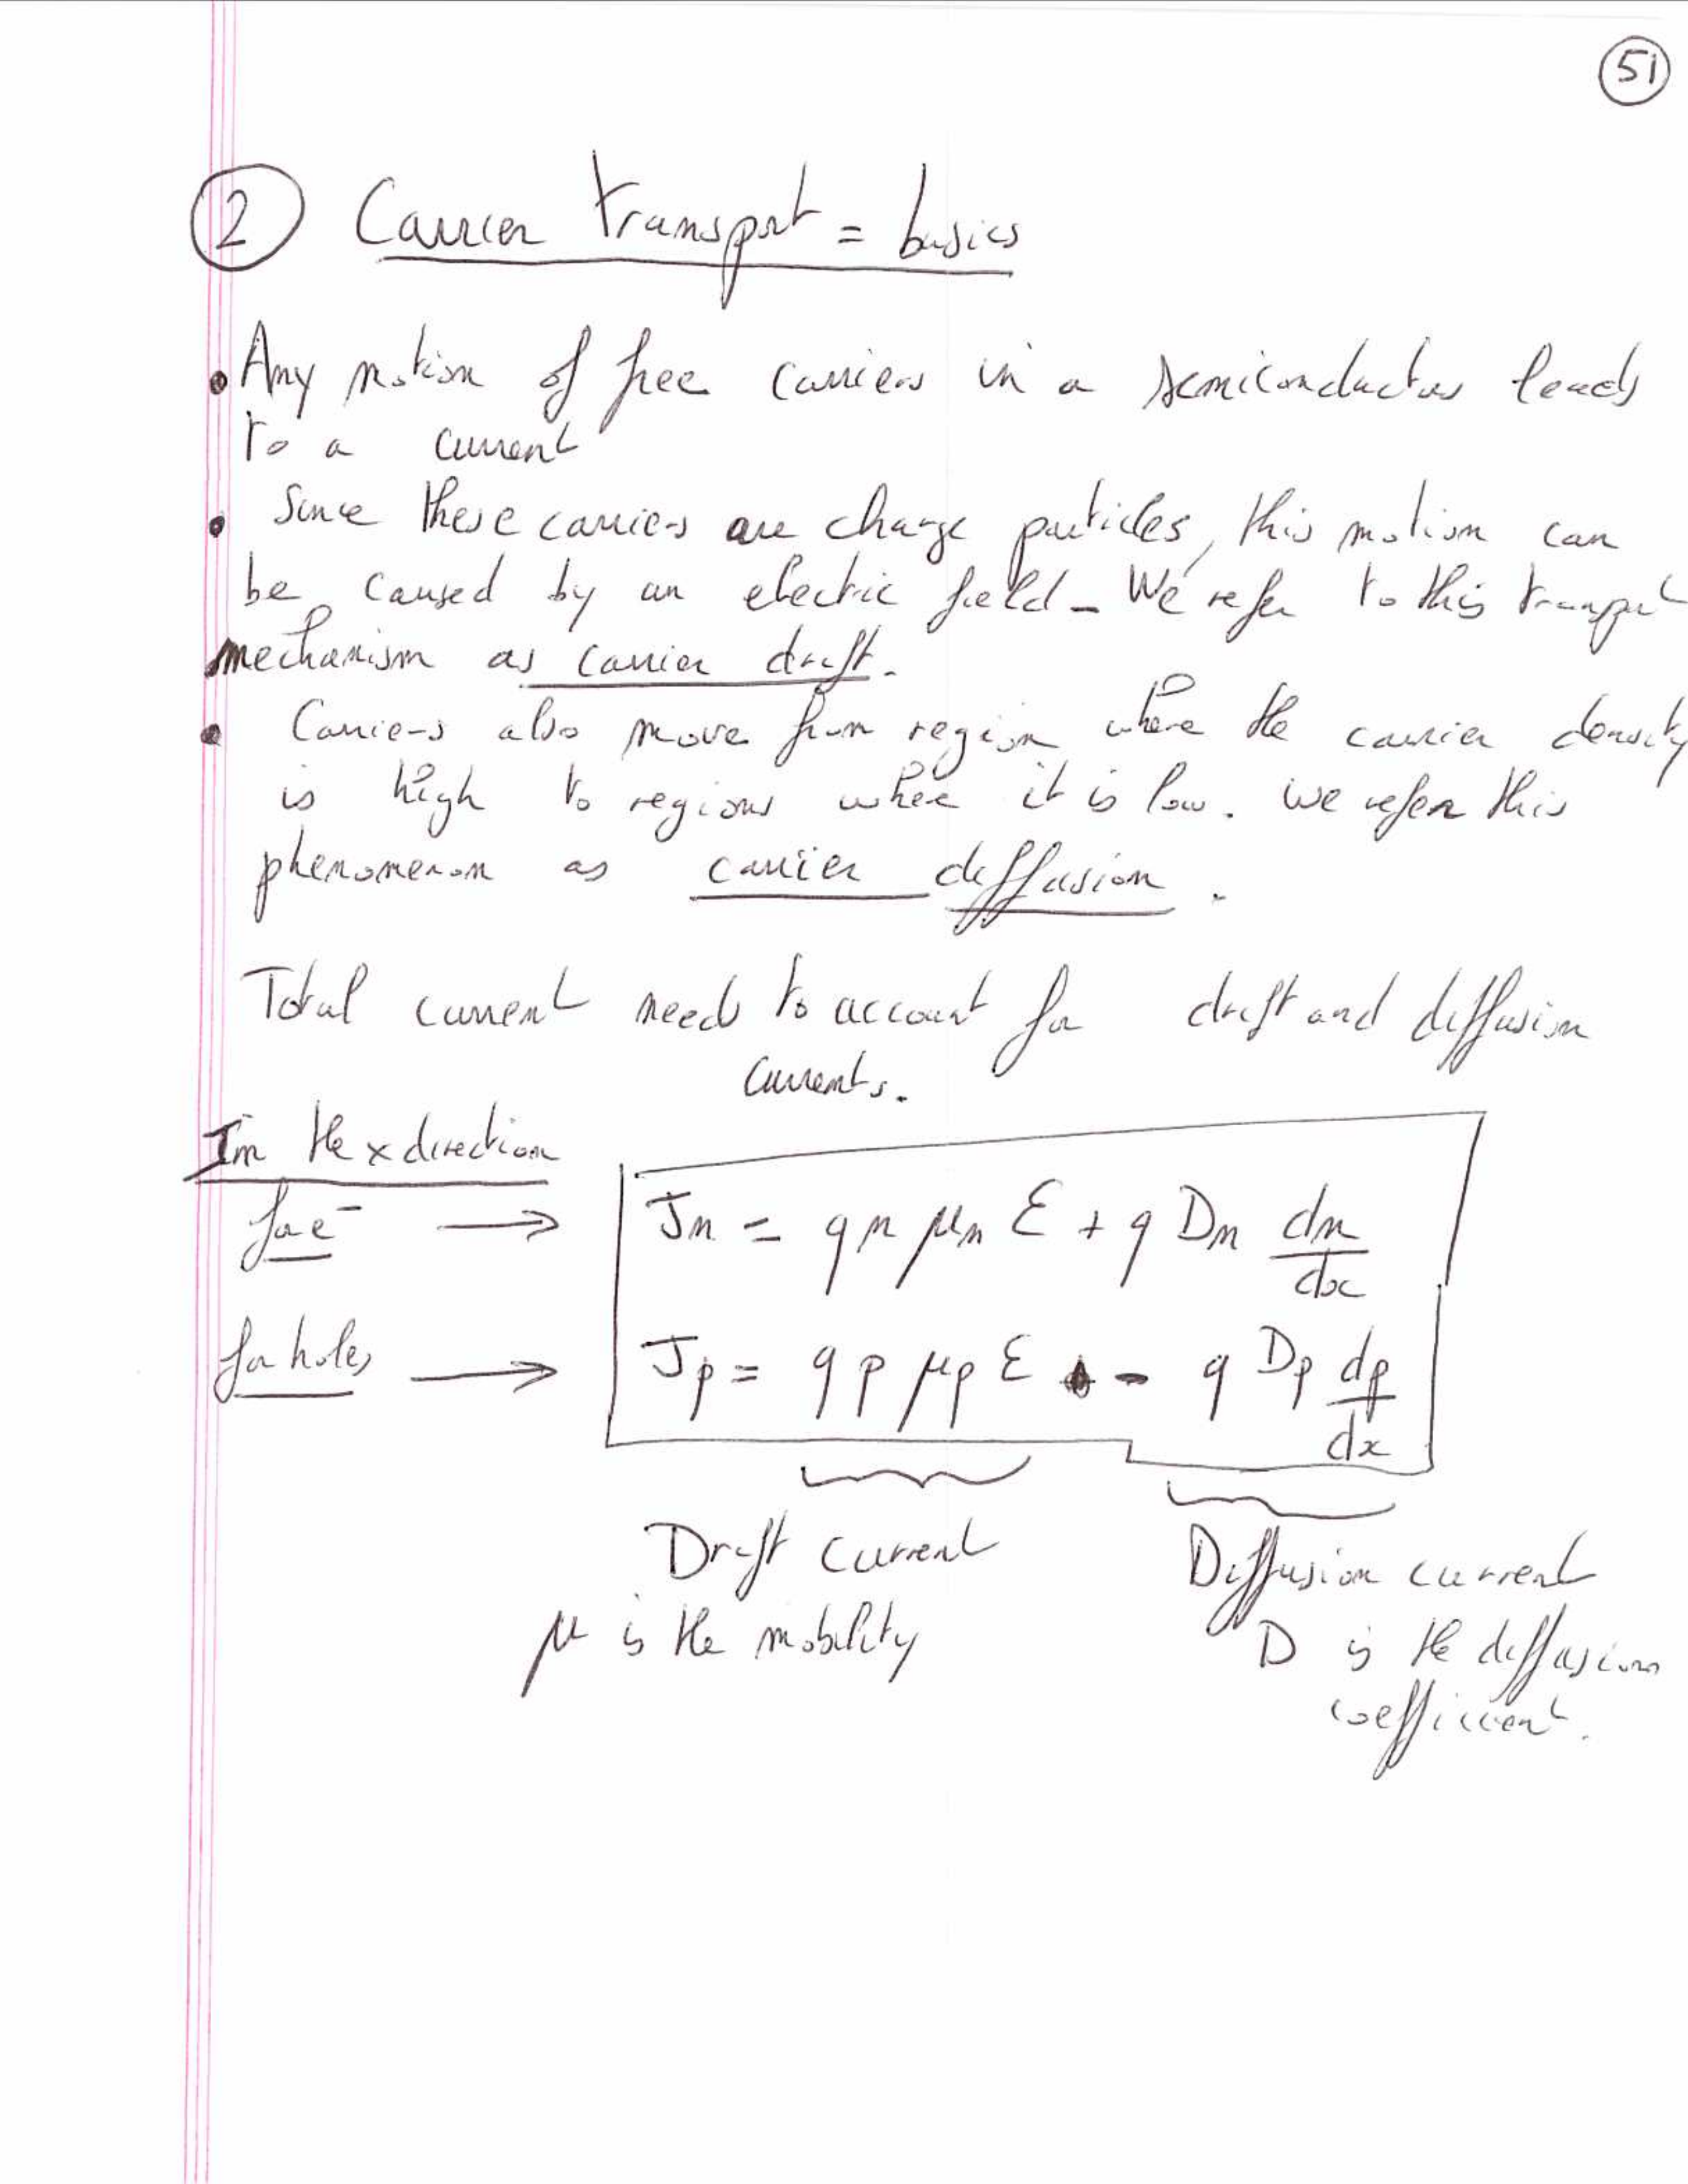 51
2 Carrier transport = basics
• Any motion of free carriers in a semiconductor leads
to a current
• Since these carriers are charge particles, this motion can
be caused by an electric field - We refer to this transport
mechanism as carrier drift.
• Carriers also move from region where the carrier density
is high to regions where it is low. We refer this
phenomenon as carrier diffusion.
Total current need to account for drift and diffusion
currents.
In the x direction
for e⁻ → Jn = q n μn ℰ + q Dn dn/dx
for holes → Jp = q p μp ℰ - q Dp dp/dx
Drift current Diffusion current
μ is the mobility D is the diffusion
coefficient.